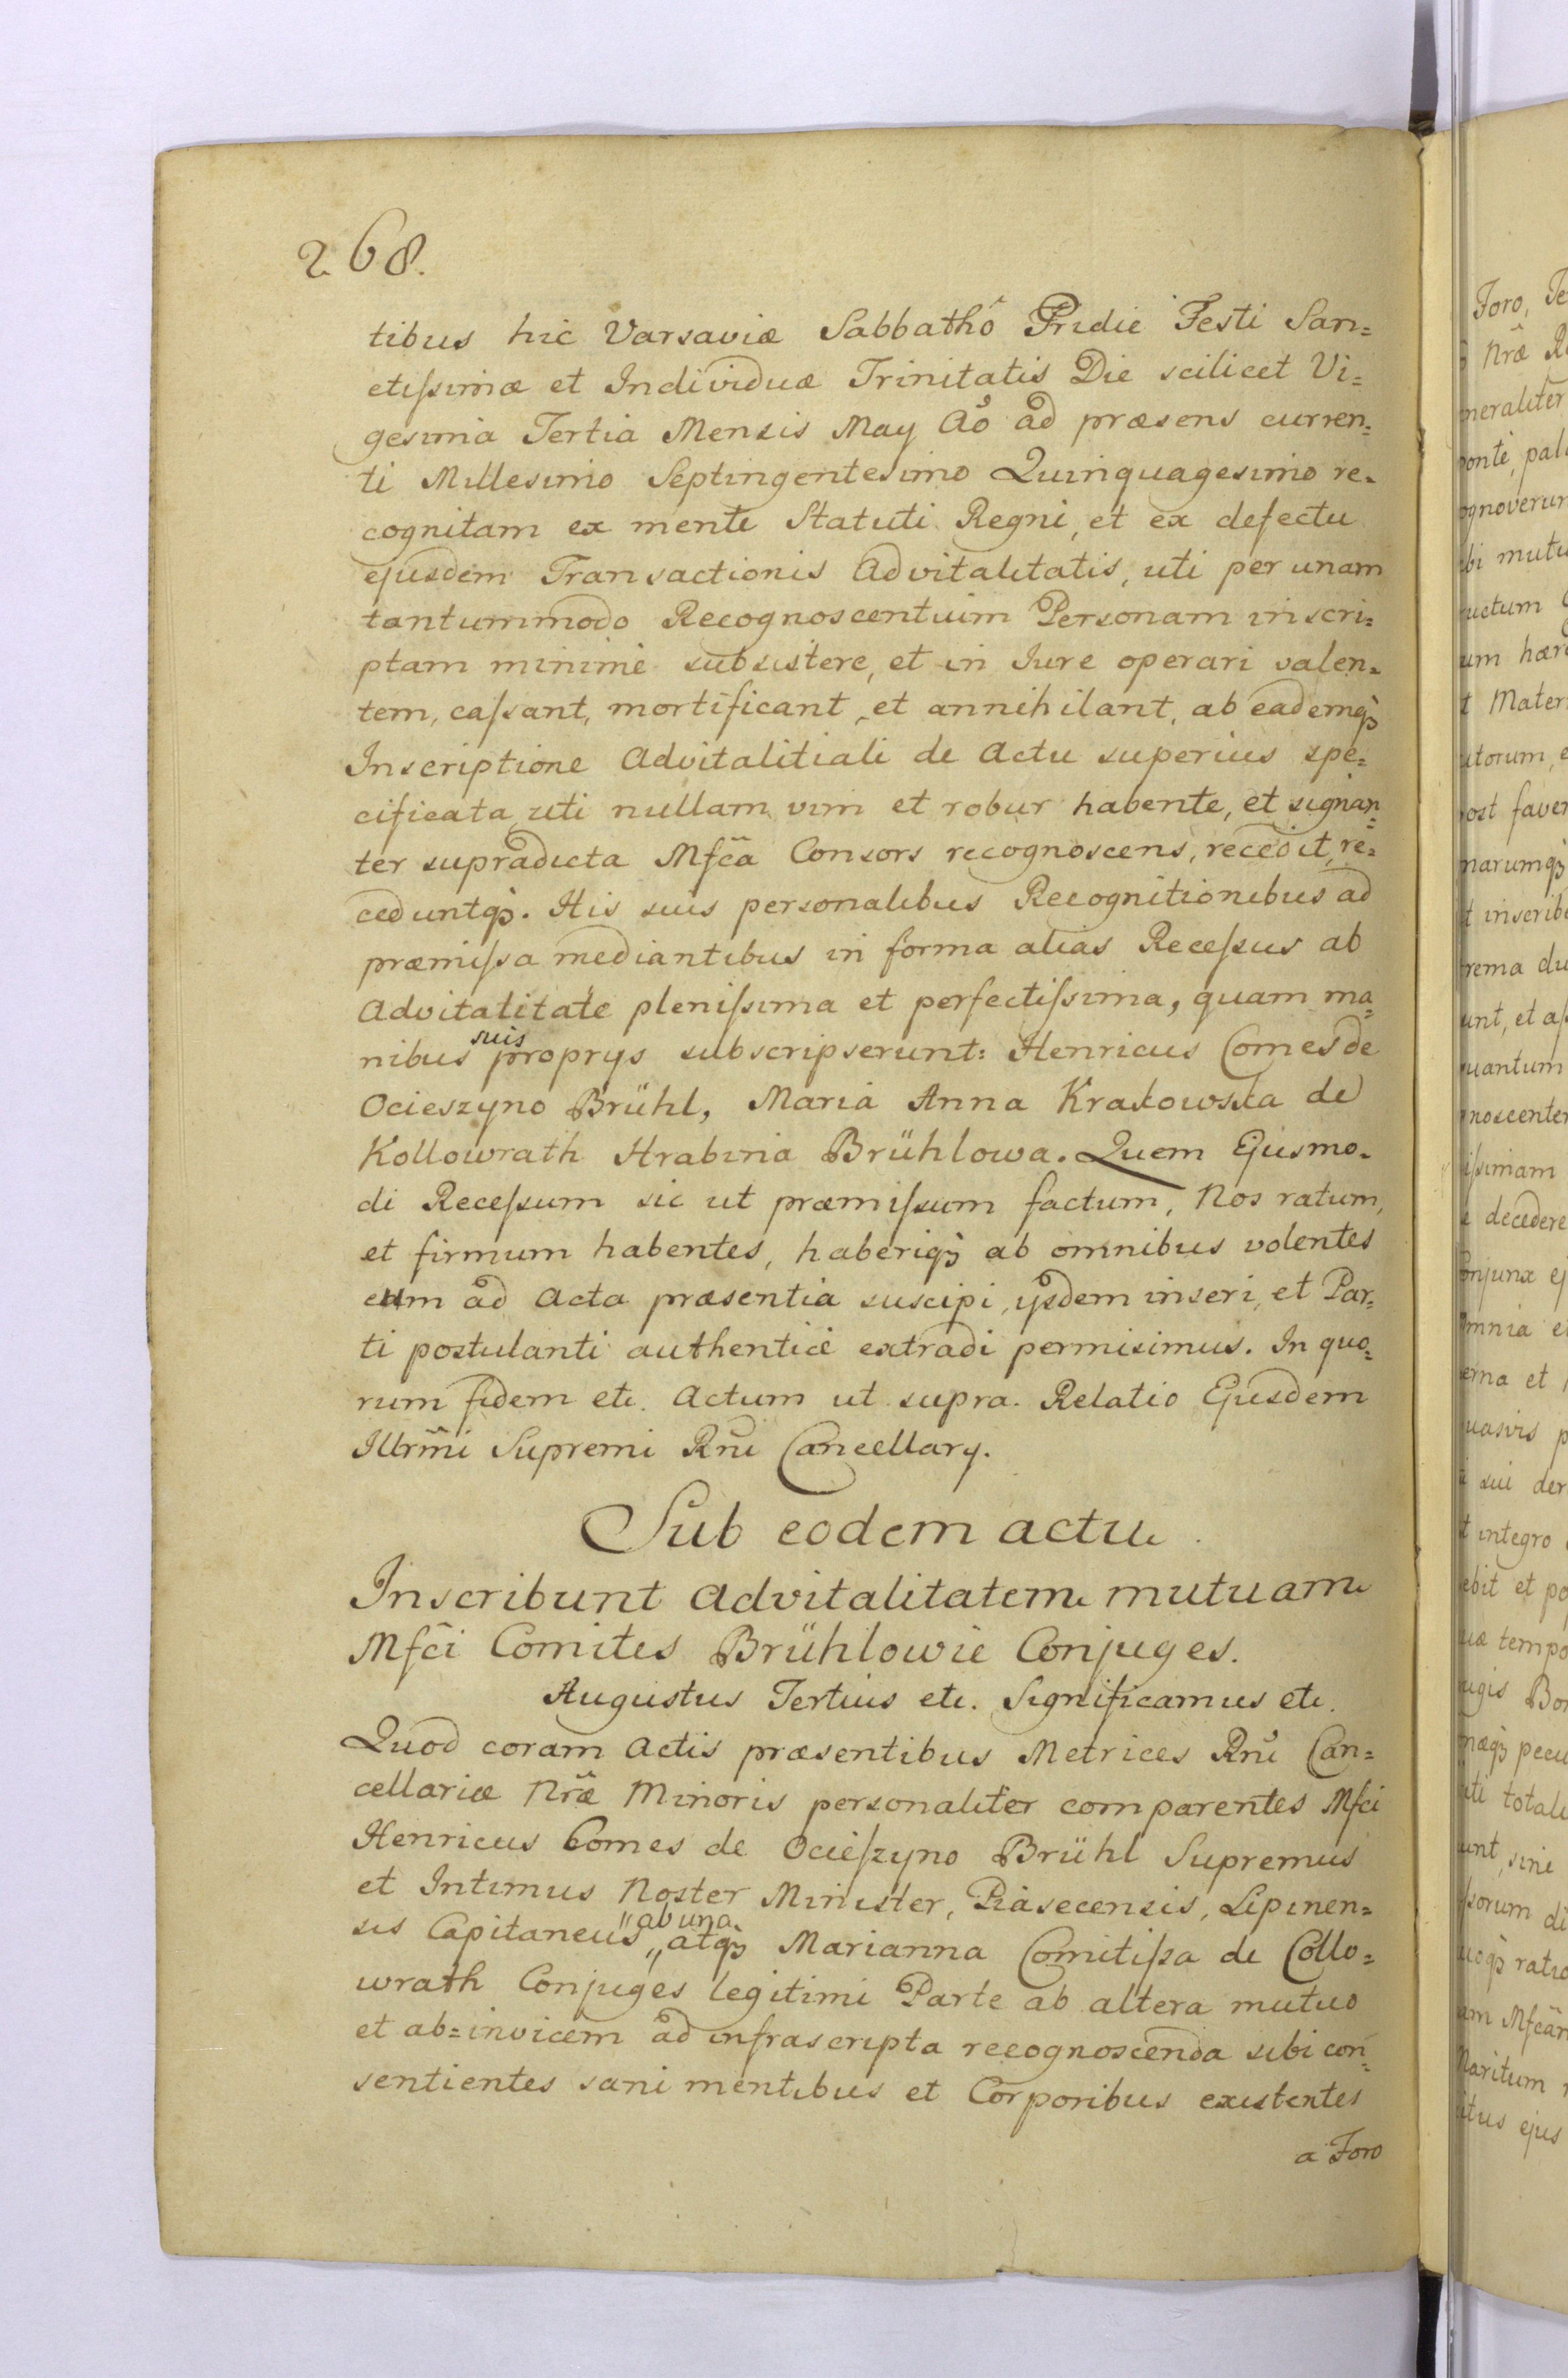 268.
tibus hic Varsaviæ Sabbathô Pridie Festi San=
ctiſsimæ et Individuæ Trinitatis Die scilicet Vi=
gesima Tertia Mensis May Aō ad præsens curren=
ti Millesimo Septingentesimo Quinquagesimo re=
cognitam ex mente Statuti Regni, et ex defectu
ejusdem Transactionis Advitalitatis, uti per unam
tantummodo Recognoscentium Personam inscri=
ptam minime subsistere, et in Iure operari valen=
tem, caſsant, mortificant, et annihilant, ab eademqȝ
Inscriptione Advitalitiali de Actu superius spe=
cificata uti nullam vim et robur habente, et signan=
ter supradicta Mfc̃a Consors recognoscens, recedit, re=
ceduntqȝ. His suis personalibus Recognitionibus ad
præmiſsa mediantibus in forma alias Receſsus ab
Advitalitate pleniſsima et perfectiſsima, quam ma=
nibus suis proprys subscripserunt: Henricus Comes de
Ocieszyno Brühl, Maria Anna Krakowska de
Kollowrath Hrabina Brühlowa. Quem Ejusmo=
di Receſsum sic ut præmiſsum factum, Nos ratum,
et firmum habentes, haberiqȝ ab omnibus volentes
eum ad Acta præsentia suscipi, ysdem inseri, et Par=
ti postulanti authentice extradi permisimus. In quo=
rum fidem etc. Actum ut supra. Relatio Ejusdem
Illrm̃i Supremi Rñi Cancellary.
Sub eodem actu
Inscribunt Advitalitatem mutuam
Mfc̃i Comites Brühlowie Conjuges.
Augustus Tertius etc. Significamus etc.
Quod coram Actis præsentibus Metrices Rñi Can=
cellariæ Nr̃æ Minoris personaliter comparentes Mfci
Henricus Comes de Ocieſzyno Brühl Supremus
et Intimus Noster Minister, Piasecensis, Lipinen=
sis Capitaneus "ab una „atqȝ Marianna Comitiſsa de Collo=
wrath Conjuges legitimi Parte ab altera mutuo
et ab=invicem ad infrascripta recognoscenda sibi con=
sentientes sani mentibus et Corporibus existentes
a Foro